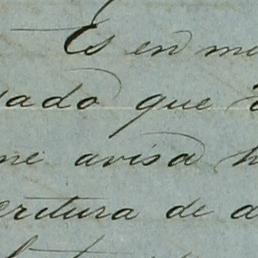 Es en m
sado que
me avisa h
critura de a